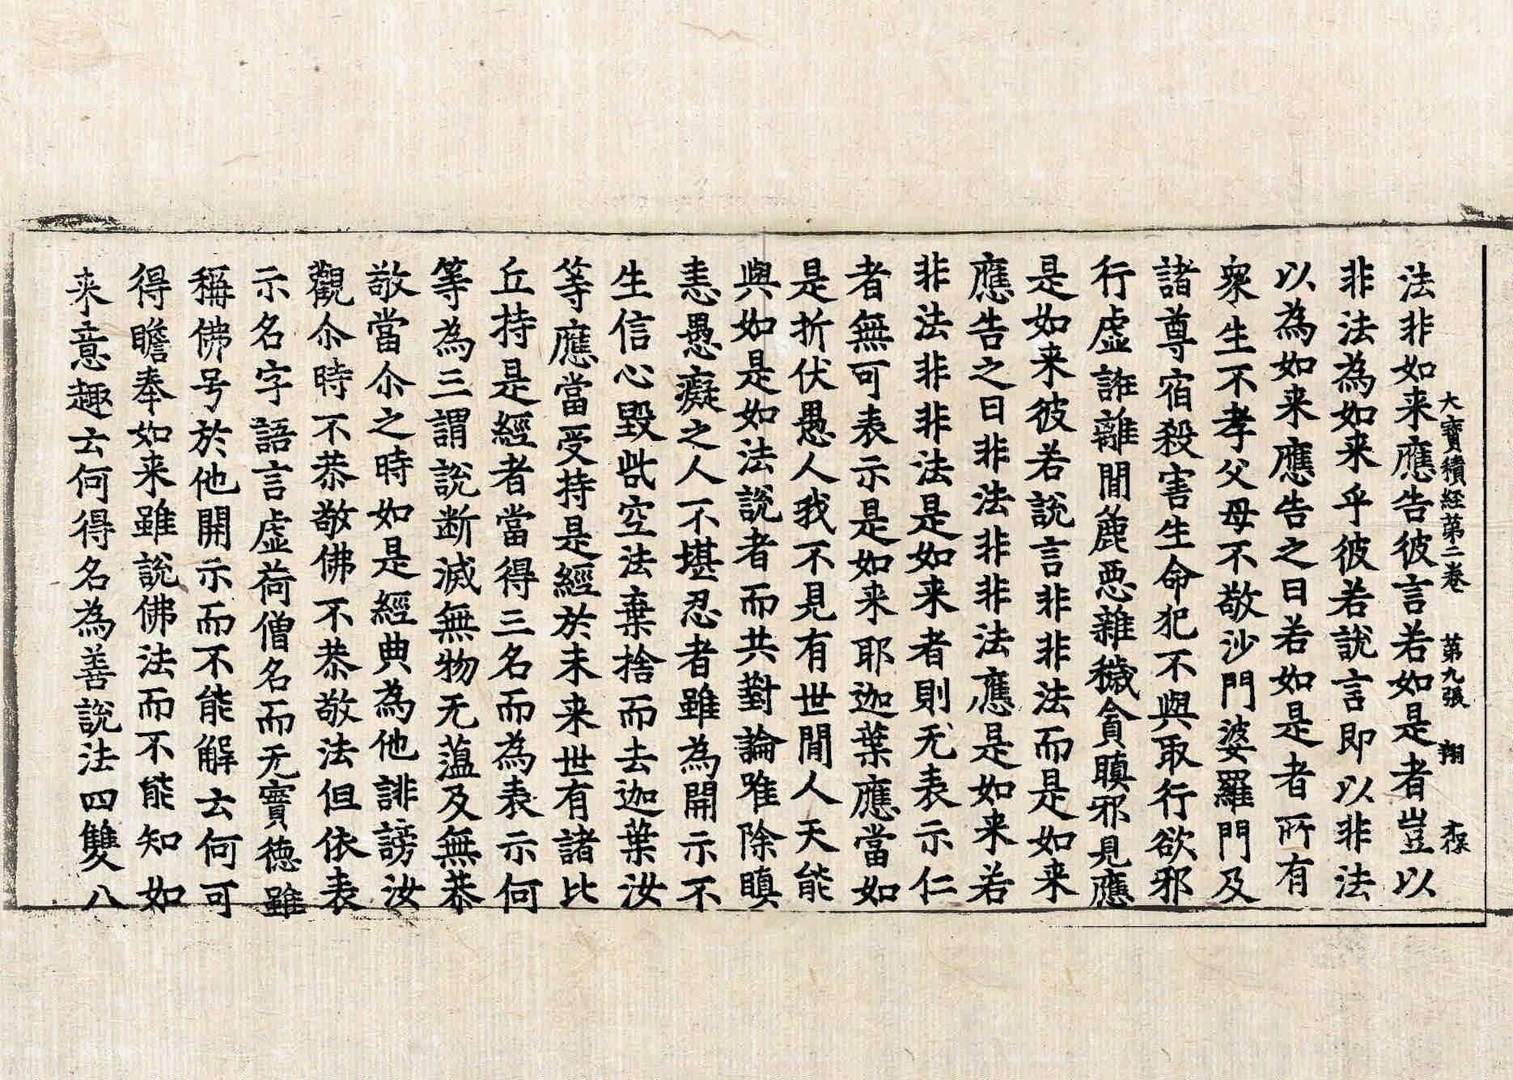 大寶積経第二卷 第九張 翔
法非如来應告彼言若如是者豈以
非法為如来乎彼若說言即以非法
以為如来應告之曰若如是者所有
衆生不孝父母不敬沙門婆羅門及
諸尊宿殺害生命犯不與取行欲邪
行虛誑離間麁惡雜穢貪瞋邪見應
是如来彼若說言非非法而是如来
應告之曰非法非非法應是如来若
非法非非法是如来者則无表示仁
者無可表示是如来耶迦葉應當如
是折伏愚人我不見有世間人天能
與如是如法說者而共對論唯除瞋
恚愚癡之人不堪忍者雖為開示不
生信心毀呰空法棄捨而去迦葉汝
等應當受持是經於未来世有諸比
丘持是經者當得三名而為表示何
等為三謂說断滅無物无薀及無恭
敬當尒之時如是經典為他誹謗汝
觀尒時不恭敬佛不恭敬法但依表
示名字語言虛荷僧名而无實德雖
稱佛号於他開示而不能解云何可
得瞻奉如来雖說佛法而不能知如
来意趣云何得名為善說法四雙八